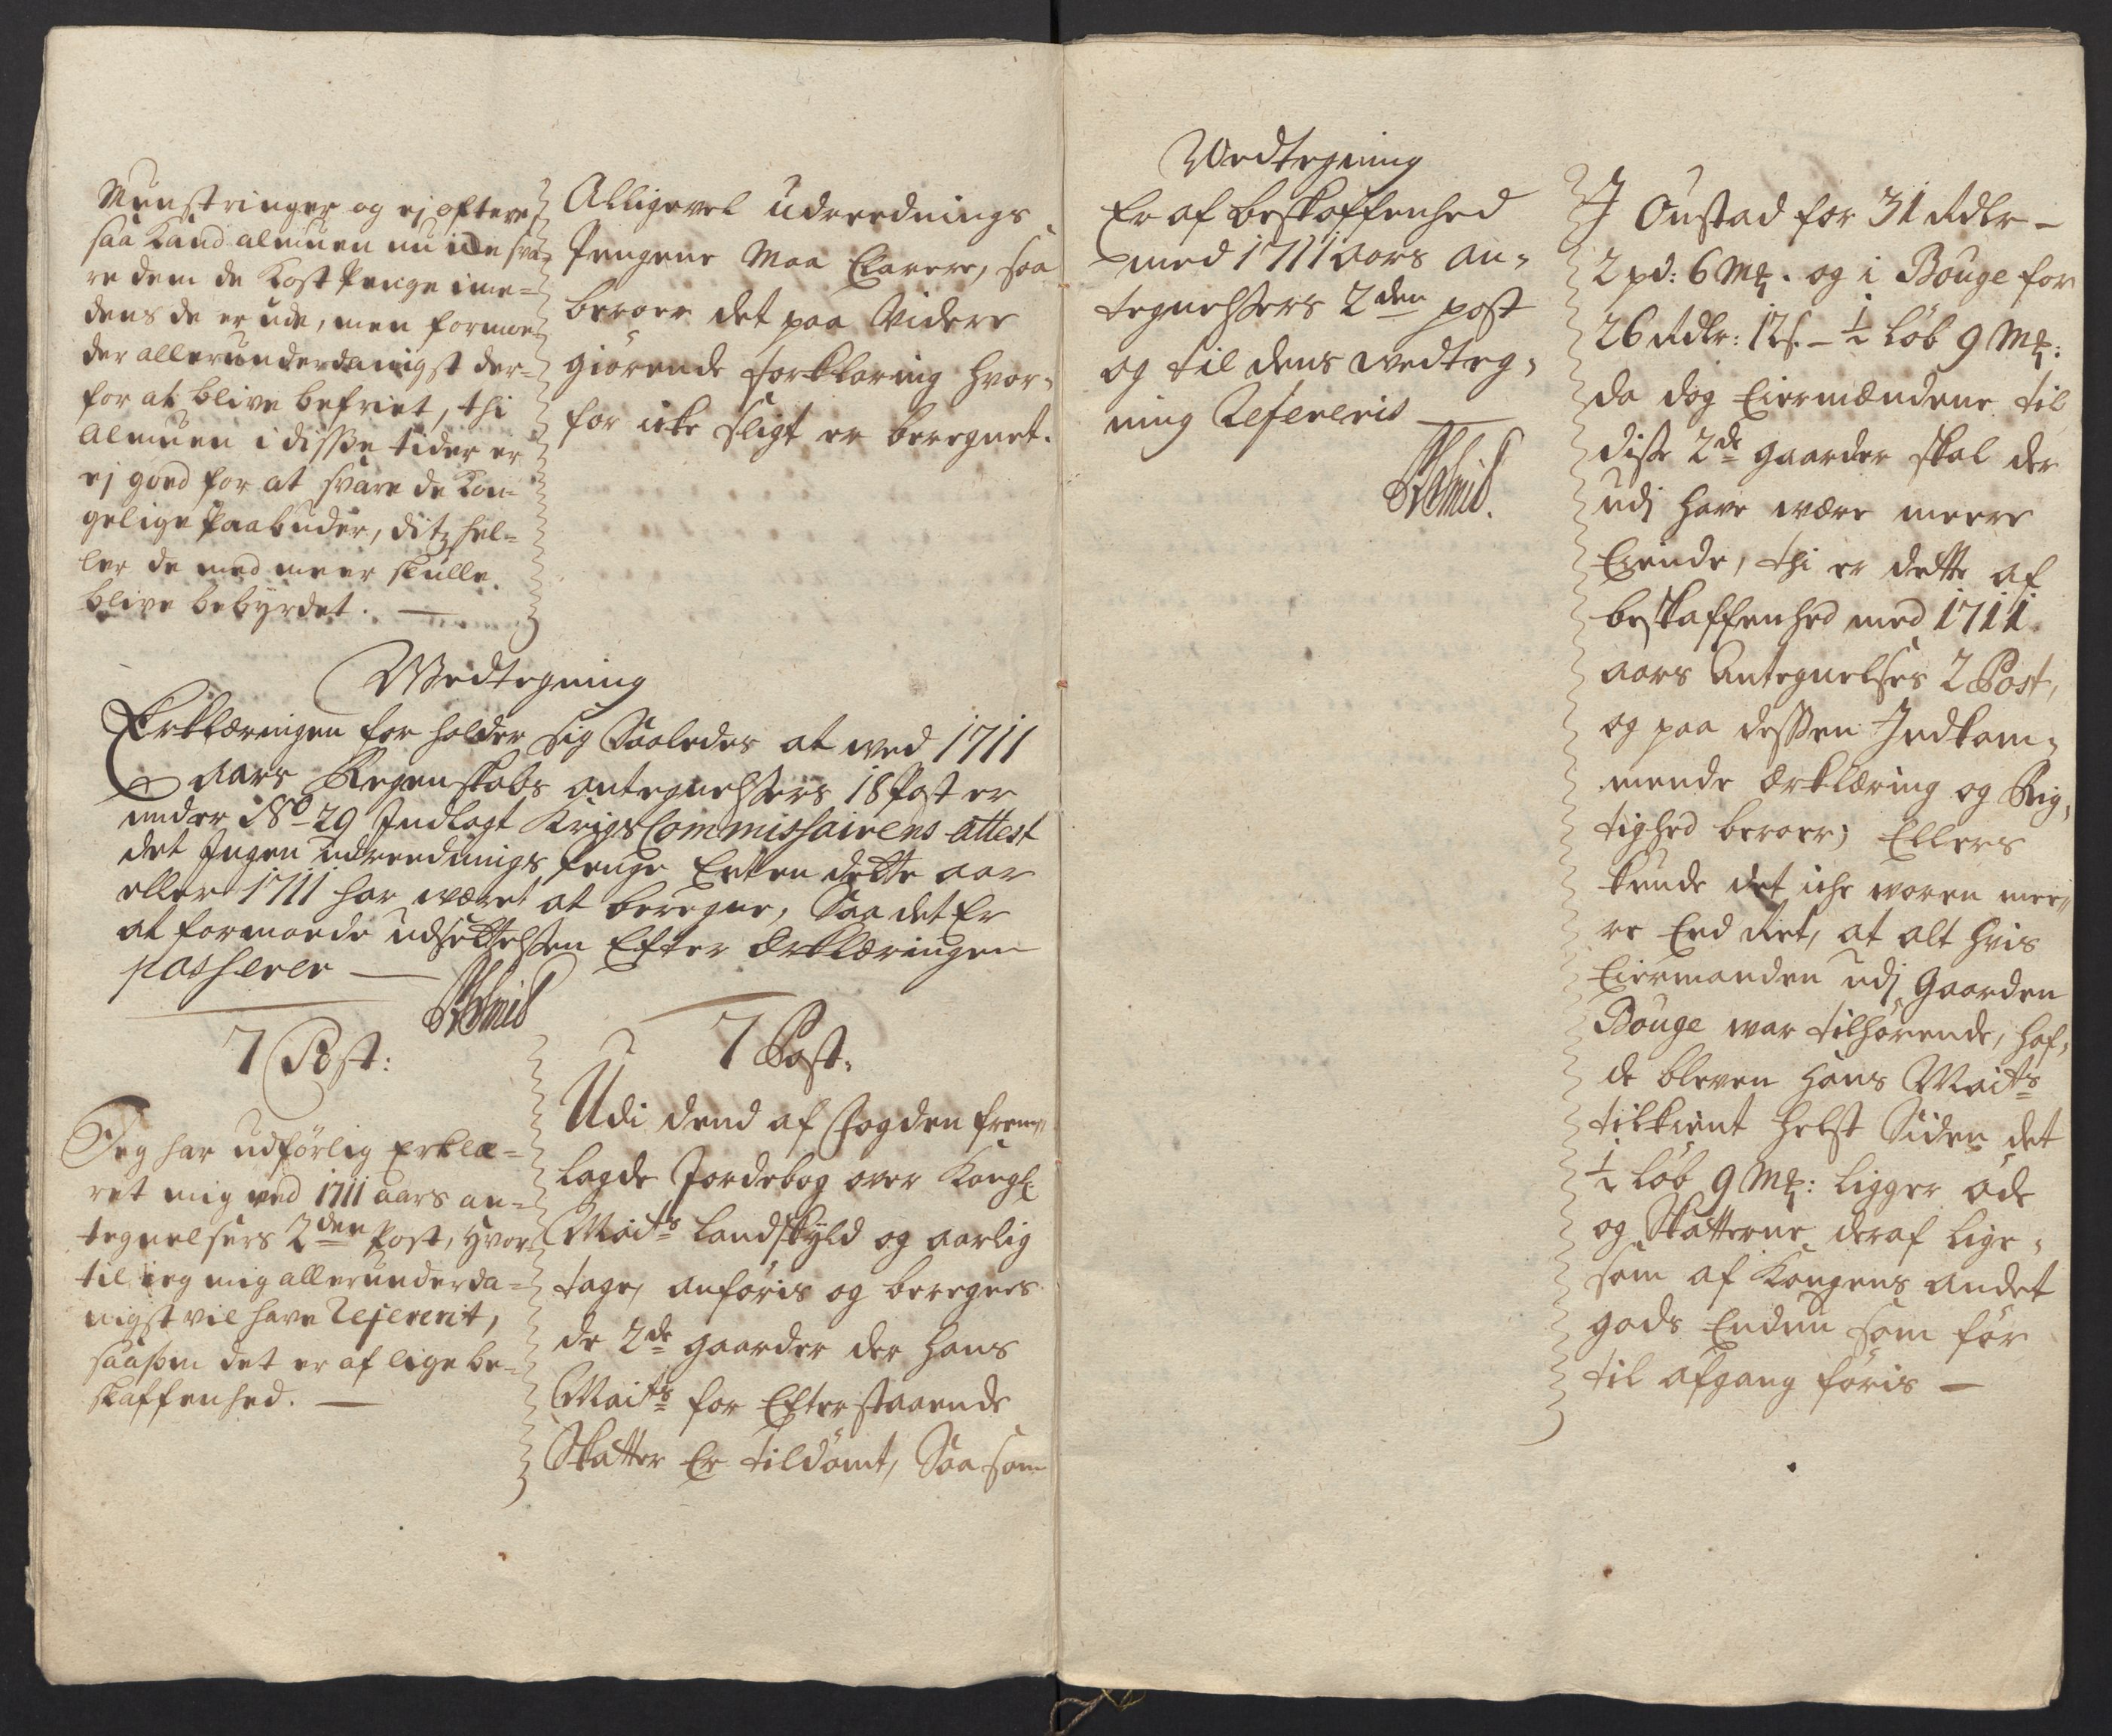 Munstringer og ej oftere,
saa kand almuen nu icke sva-
re dem de Kost Penge ime-
dens de er ude, men formoe-
der allerunderdanigst der-
for at blive befriet, thi
almuen i disse tider er
ej goed for at svare de Kon-
gelige Paabuder, ditz hel-
ler de med meer skulle
blive bebyrdet. —
Alligevel udreednings
Pengene Maa Clarere, saa
beroer det paa Videre
giörende forklaring hvor-
for icke sligt er beregnet.
Wedtegning
Erklæringen for holder sig Saaledes at wed 1711
aars Regenskabs antegnelsers 18 Post er
under No 29 Indlagt Krigs Commissairens attest
det Ingen udreednings penge Enten dette aar
eller 1711 har wæret at beregne, Saa det Er
at formoede udsettelsen Efter Erklæringen
passerer —
7 Post:
Jeg har udförlig Erklæ-
ret mig ved 1711 aars an-
tegnelsers 2den Post, hvor-
til ieg mig allerunderda-
nigst vil have Refererit,
saasom det er af lige be-
skaffenhed. —
7 Post:
Udi dend af Fogden frem-
lagde Jordebog over Kongl:
Maits Landskyld og aarlig
tage, anföris og beregnes
de 2de gaarder der Hans
Maits for Efterstaaende
Skatter Er tildömt, Saasom
Wedtegning
Er af beskaffenhed
med 1711 aars an-
tegnelsers 2den post
og til dens wedteg-
ning Refereris —
J Oustad for 31 Rdlr —
2 pd: 6 Mk. og i Bouge for
26 Rdlr: 12 s. — ½ löb 9 Mk:
da dog Eiermændene til
disse 2de gaarder skal der
udj have være meere
Eiende, thi er dette af
beskaffenhed med 1711
aars Antegnelses 2 Post,
og paa dessen Indkom-
mende Erklæring og Rig-
tighed beroer; Ellers
kunde det iche woren mee-
re End Ret, at alt hvis
Eiermanden udj Gaarden
Bouge war tilhörende, haf-
de bleven Hans Maits
tilkient helst Siden det
½ löb 9 Mk: ligger öde
og Skatterne deraf lige-
som af Kongens andet
gods Endnu som för
til afgang föris —